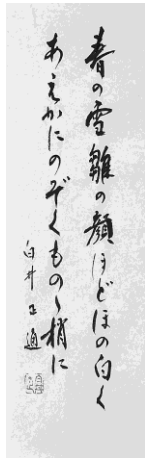 春の雪雛の顔ほどほの白く
あえかにのぞくものゝ梢に
白井正通